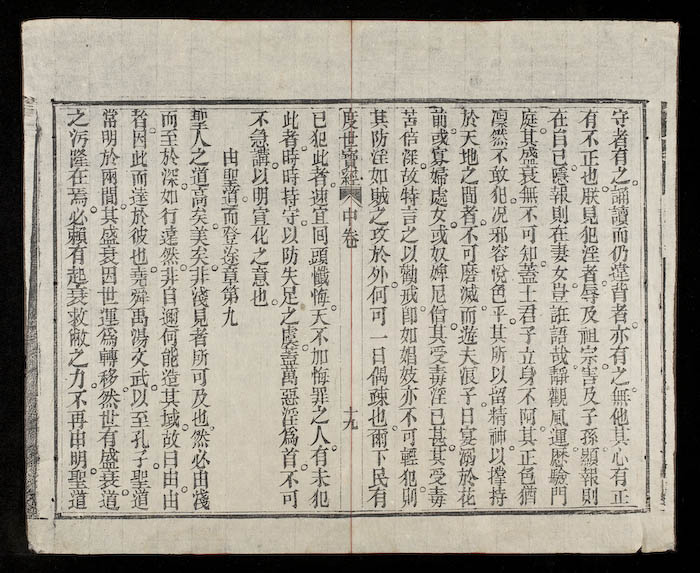 守者有之誦讀而仍違背者亦有之無他其心有正
有不正也朕見犯淫者辱及祖宗害及子孫顯報則
在自己隱報則在妻女豈誑語哉靜觀風運歷驗門
庭其盛衰無不可知蓋士君子立身不阿其正色猶
凜然不敢犯况邪容悅色乎其所以留精神以撐持
於天地之面者不可磨滅而遊夫浪子日宴溺於花
前或寡婦處女或奴婢尼僧其受毒淫已甚其受毒
苦倍深故特言之以勸戒即如娼妓亦不可輕犯則
其防淫如賊之攻於外何可一日偶疎也爾下民有
度世寶經 中卷 十九
已犯此者速宜回頭懺悔天不加悔罪之人有未犯
此者時時持守以防失足之虞蓋萬惡淫為首不可
不急講以明宣化之意也
由聖道而登岺章第九
聖人之道高矣美矣非淺見者所可及也然必由淺
而至於深如行遠然非自邇何能造其域故曰由由
者因此而達於彼也堯舜禹湯文武以至孔子聖道
常明於兩間其盛衰因世運為轉移然世有盛衰道
之污隆在焉必賴有起衰救敝之力不再由明聖道